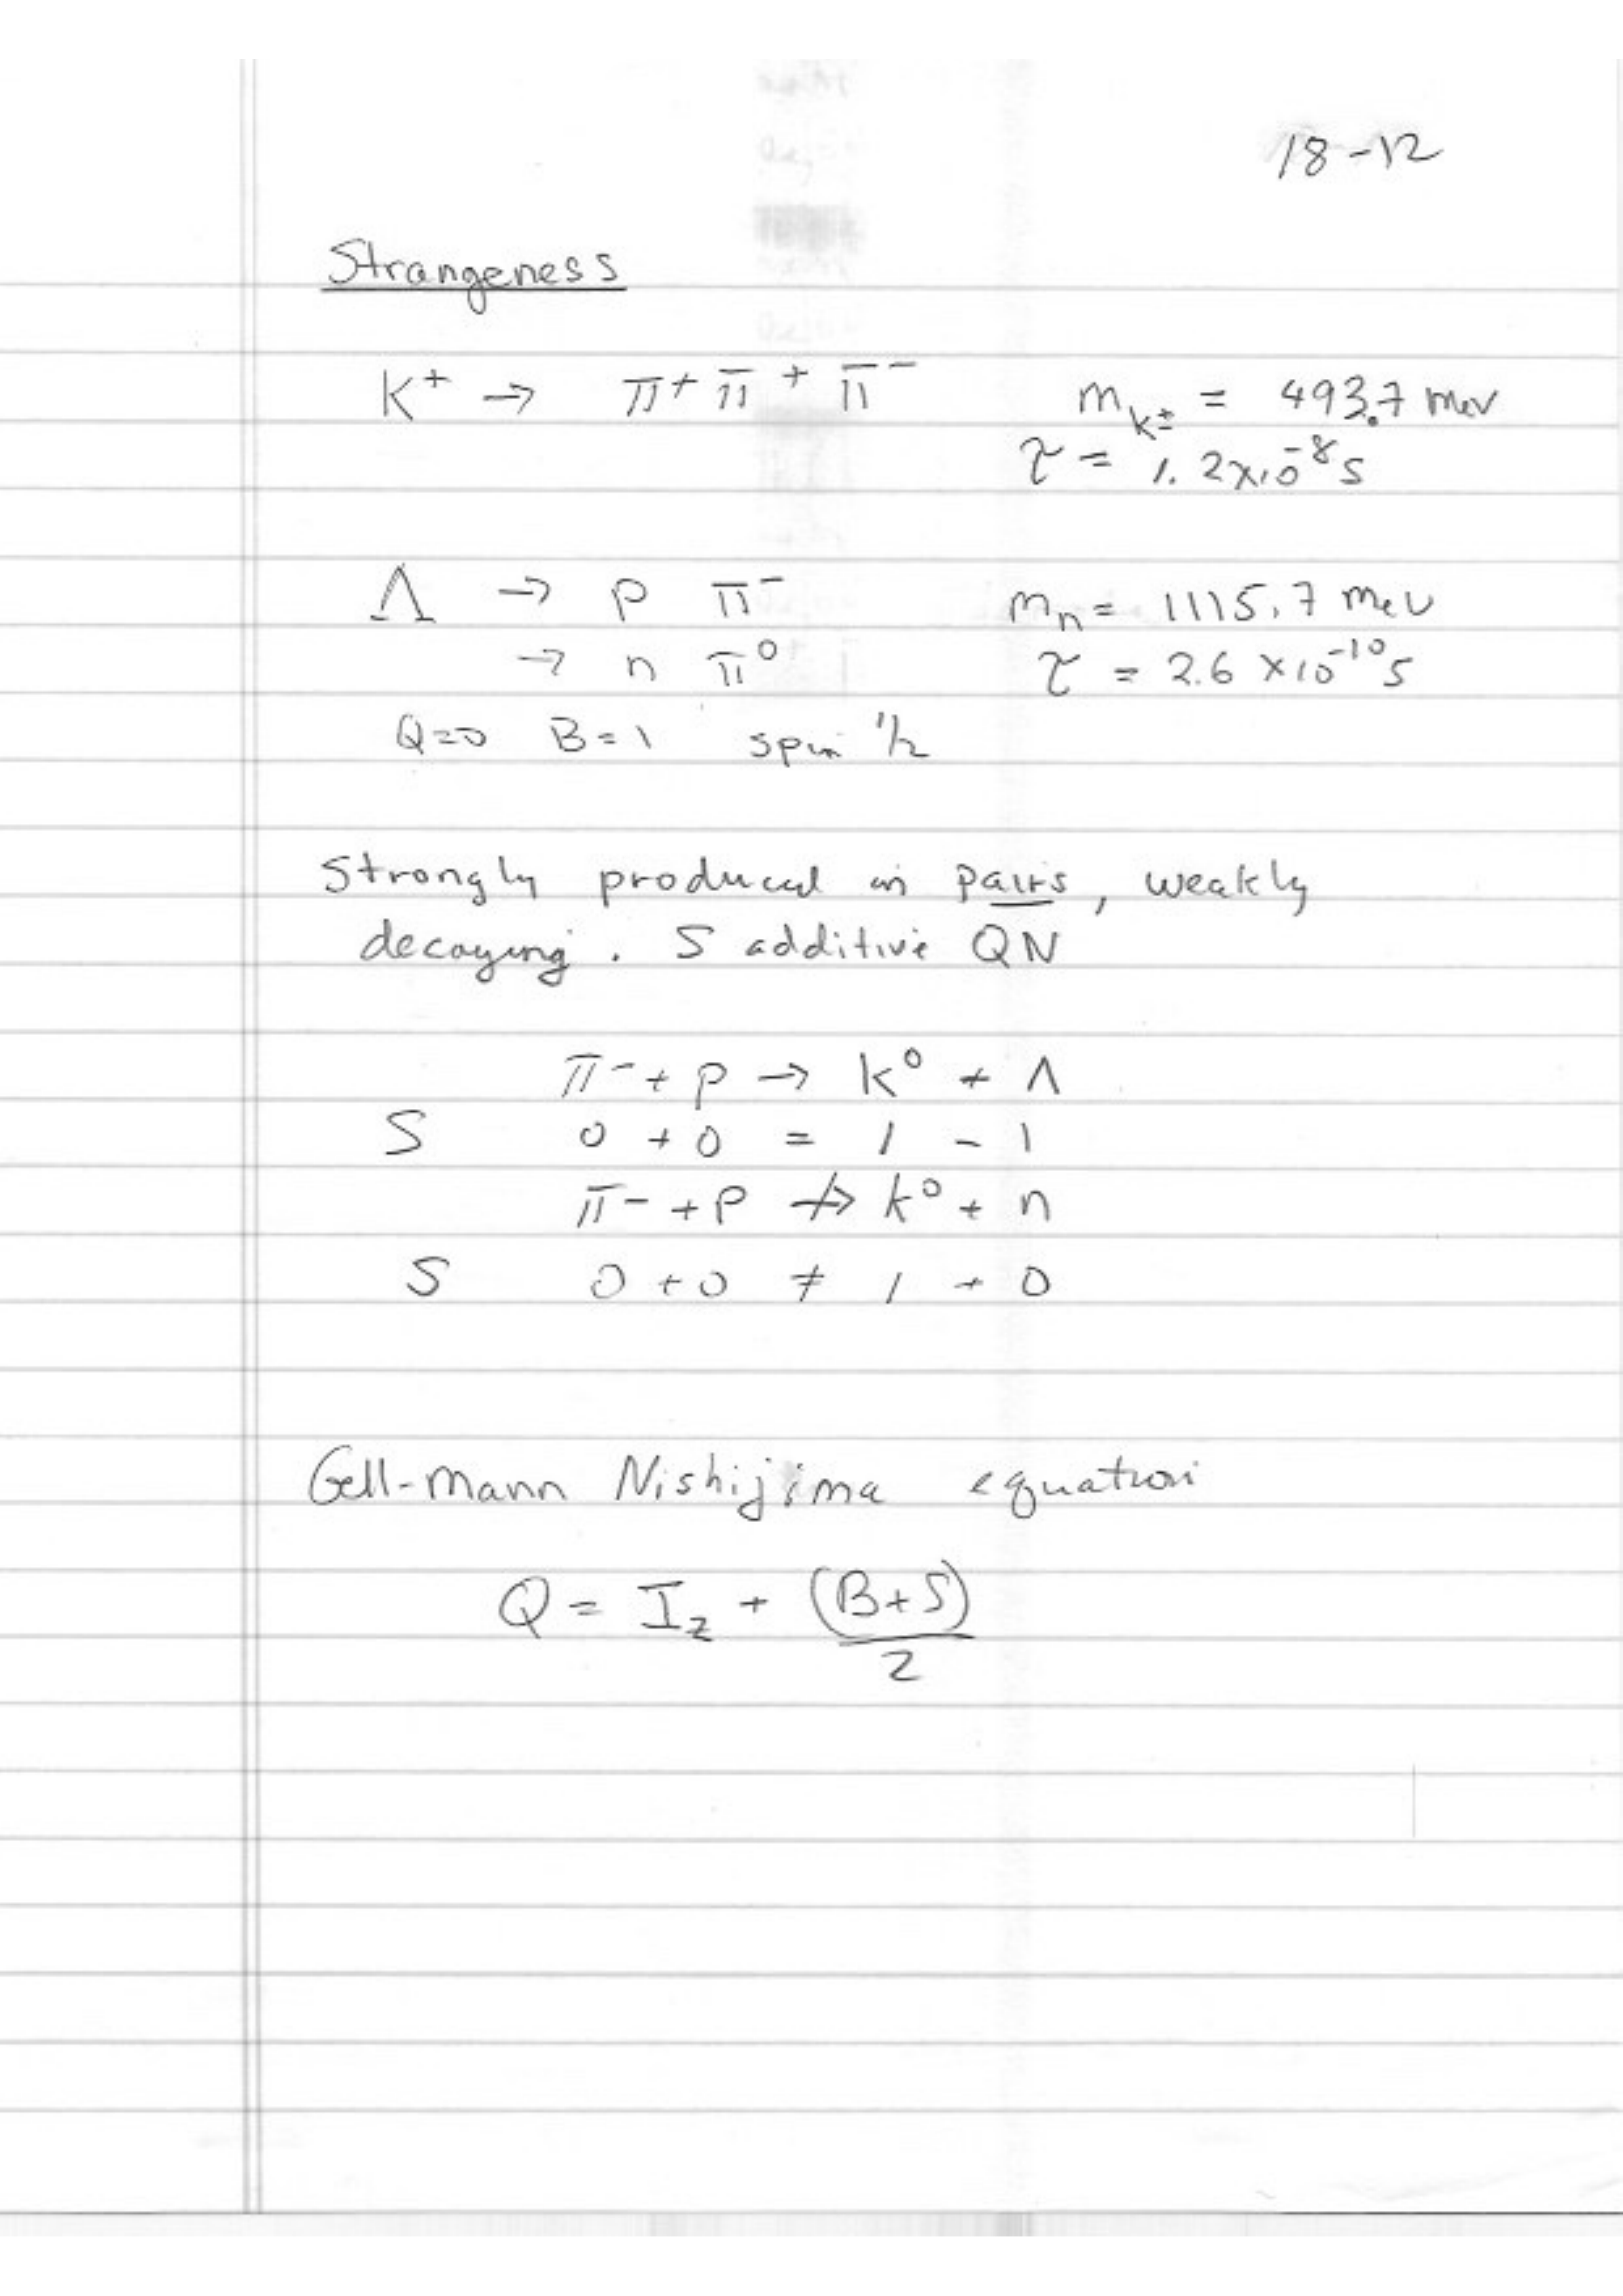 18-12
Strangeness
K⁺ → π⁺ π⁺ π⁻ m_K± = 493.7 MeV
τ = 1.2×10⁻⁸ s
Λ → p π⁻ m_n = 1115.7 MeV
→ n π⁰ τ = 2.6 × 10⁻¹⁰ s
Q=0 B=1 spin 1/2
Strongly produced in pairs, weakly
decaying. S additive QN
π⁻ + p → K⁰ + Λ
S 0 + 0 = 1 - 1
π⁻ + p ↛ K⁰ + n
S 0 + 0 ≠ 1 + 0
Gell-Mann Nishijima equation
Q = I_z + (B+S)/2